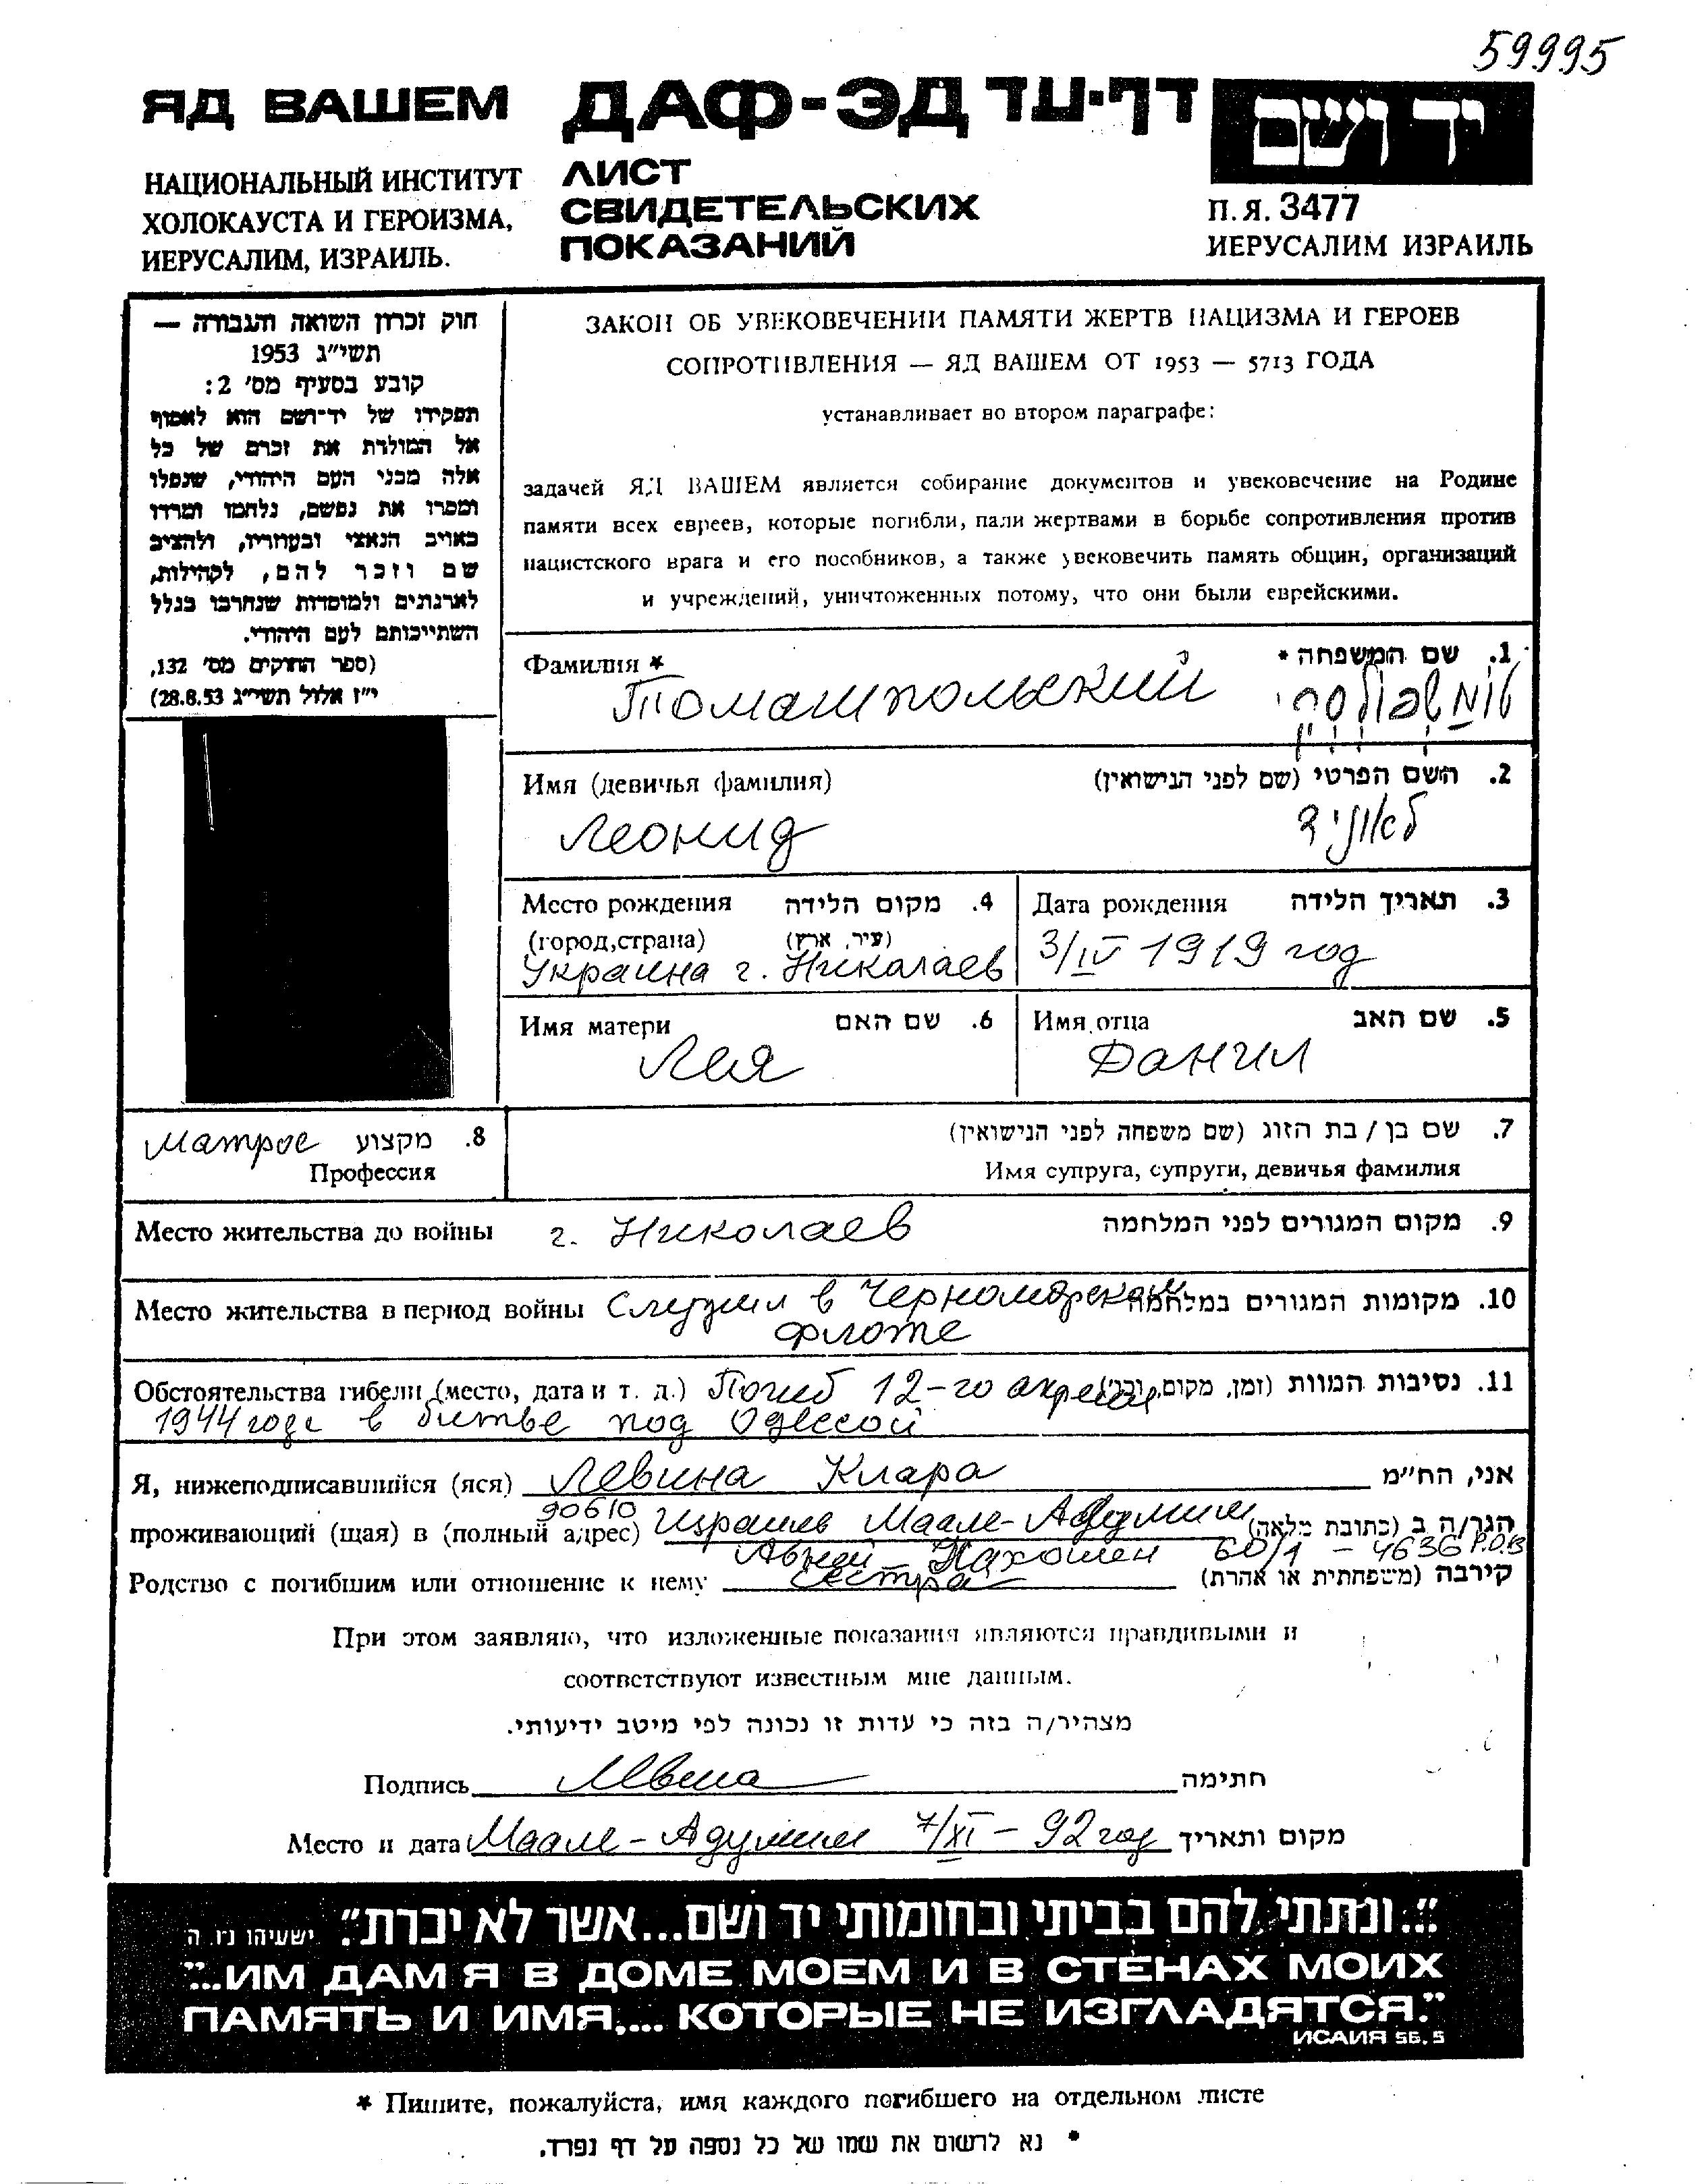 59995
ЯД ВАШЕМ
ДАФ-ЭД דף-עד
יד ושם
НАЦИОНАЛЬНЫЙ ИНСТИТУТ
ХОЛОКАУСТА И ГЕРОИЗМА,
ИЕРУСАЛИМ, ИЗРАИЛЬ.
ЛИСТ
СВИДЕТЕЛЬСКИХ
ПОКАЗАНИЙ
П.Я. 3477
ИЕРУСАЛИМ ИЗРАИЛЬ
חוק זכרון השואה והגבורה —
תשי"ג 1953
קובע בסעיף מס' 2:
תפקידו של יד-ושם הוא לאסוף
אל המולדת את זכרם של כל
אלה מבני העם היהודי, שנפלו
ומסרו את נפשם, נלחמו ומרדו
באויב הנאצי ובעוזריו, ולהציב
שם וזכר להם, לקהילות,
לארגונים ולמוסדות שנחרבו בגלל
השתייכותם לעם היהודי.
(ספר החוקים מס' 132,
י"ז אלול תשי"ג 28.8.53)
ЗАКОН ОБ УВЕКОВЕЧЕНИИ ПАМЯТИ ЖЕРТВ НАЦИЗМА И ГЕРОЕВ
СОПРОТИВЛЕНИЯ — ЯД ВАШЕМ ОТ 1953 — 5713 ГОДА
устанавливает во втором параграфе:
задачей ЯД ВАШЕМ является собирание документов и увековечение на Родине
памяти всех евреев, которые погибли, пали жертвами в борьбе сопротивления против
нацистского врага и его пособников, а также увековечить память общин, организаций
и учреждений, уничтоженных потому, что они были еврейскими.
Фамилия * 1. שם המשפחה *
Томашпольский טומשפולסקי
Имя (девичья фамилия) 2. השם הפרטי (שם לפני הנישואין)
Леонид לאוניד
Место рождения 4. מקום הלידה
(город,страна) (עיר, ארץ)
Украина г. Николаев
Дата рождения 3. תאריך הלידה
3/IV 1919 год
Имя матери 6. שם האם
Лея
Имя отца 5. שם האב
Данил
Матрос 8. מקצוע
Профессия
7. שם בן / בת הזוג (שם משפחה לפני הנישואין)
Имя супруга, супруги, девичья фамилия
Место жительства до войны г. Николаев 9. מקום המגורים לפני המלחמה
Место жительства в период войны Служил в Черноморском 10. מקומות המגורים במלחמה
флоте
Обстоятельства гибели (место, дата и т. д.) Погиб 12-го апреля 11. נסיבות המוות (זמן, מקום, וכו')
1944 года в битве под Одессой
Я, нижеподписавшийся (яся) Левина Клара אני, הח"מ
90610
проживающий (щая) в (полный адрес) Израиль Маале-Адумим הגר/ה ב (כתובת מלאה)
Авней - 60/1 - 4636 P.O.B
Родство с погибшим или отношение к нему Сестра קירבה (משפחתית או אחרת)
При этом заявляю, что изложенные показания являются правдивыми и
соответствуют известным мне данным.
מצהיר/ה בזה כי עדות זו נכונה לפי מיטב ידיעותי.
Подпись Левина חתימה
Место и дата Маале-Адумим 7/XI - 92 год מקום ותאריך
"...ונתתי להם בביתי ובחומותי יד ושם...אשר לא יכרת." ישעיהו נו, ה
"...ИМ ДАМ Я В ДОМЕ МОЕМ И В СТЕНАХ МОИХ
ПАМЯТЬ И ИМЯ,... КОТОРЫЕ НЕ ИЗГЛАДЯТСЯ."
ИСАИЯ 56.5
* Пишите, пожалуйста, имя каждого погибшего на отдельном листе
* נא לרשום את שמו של כל נספה על דף נפרד.